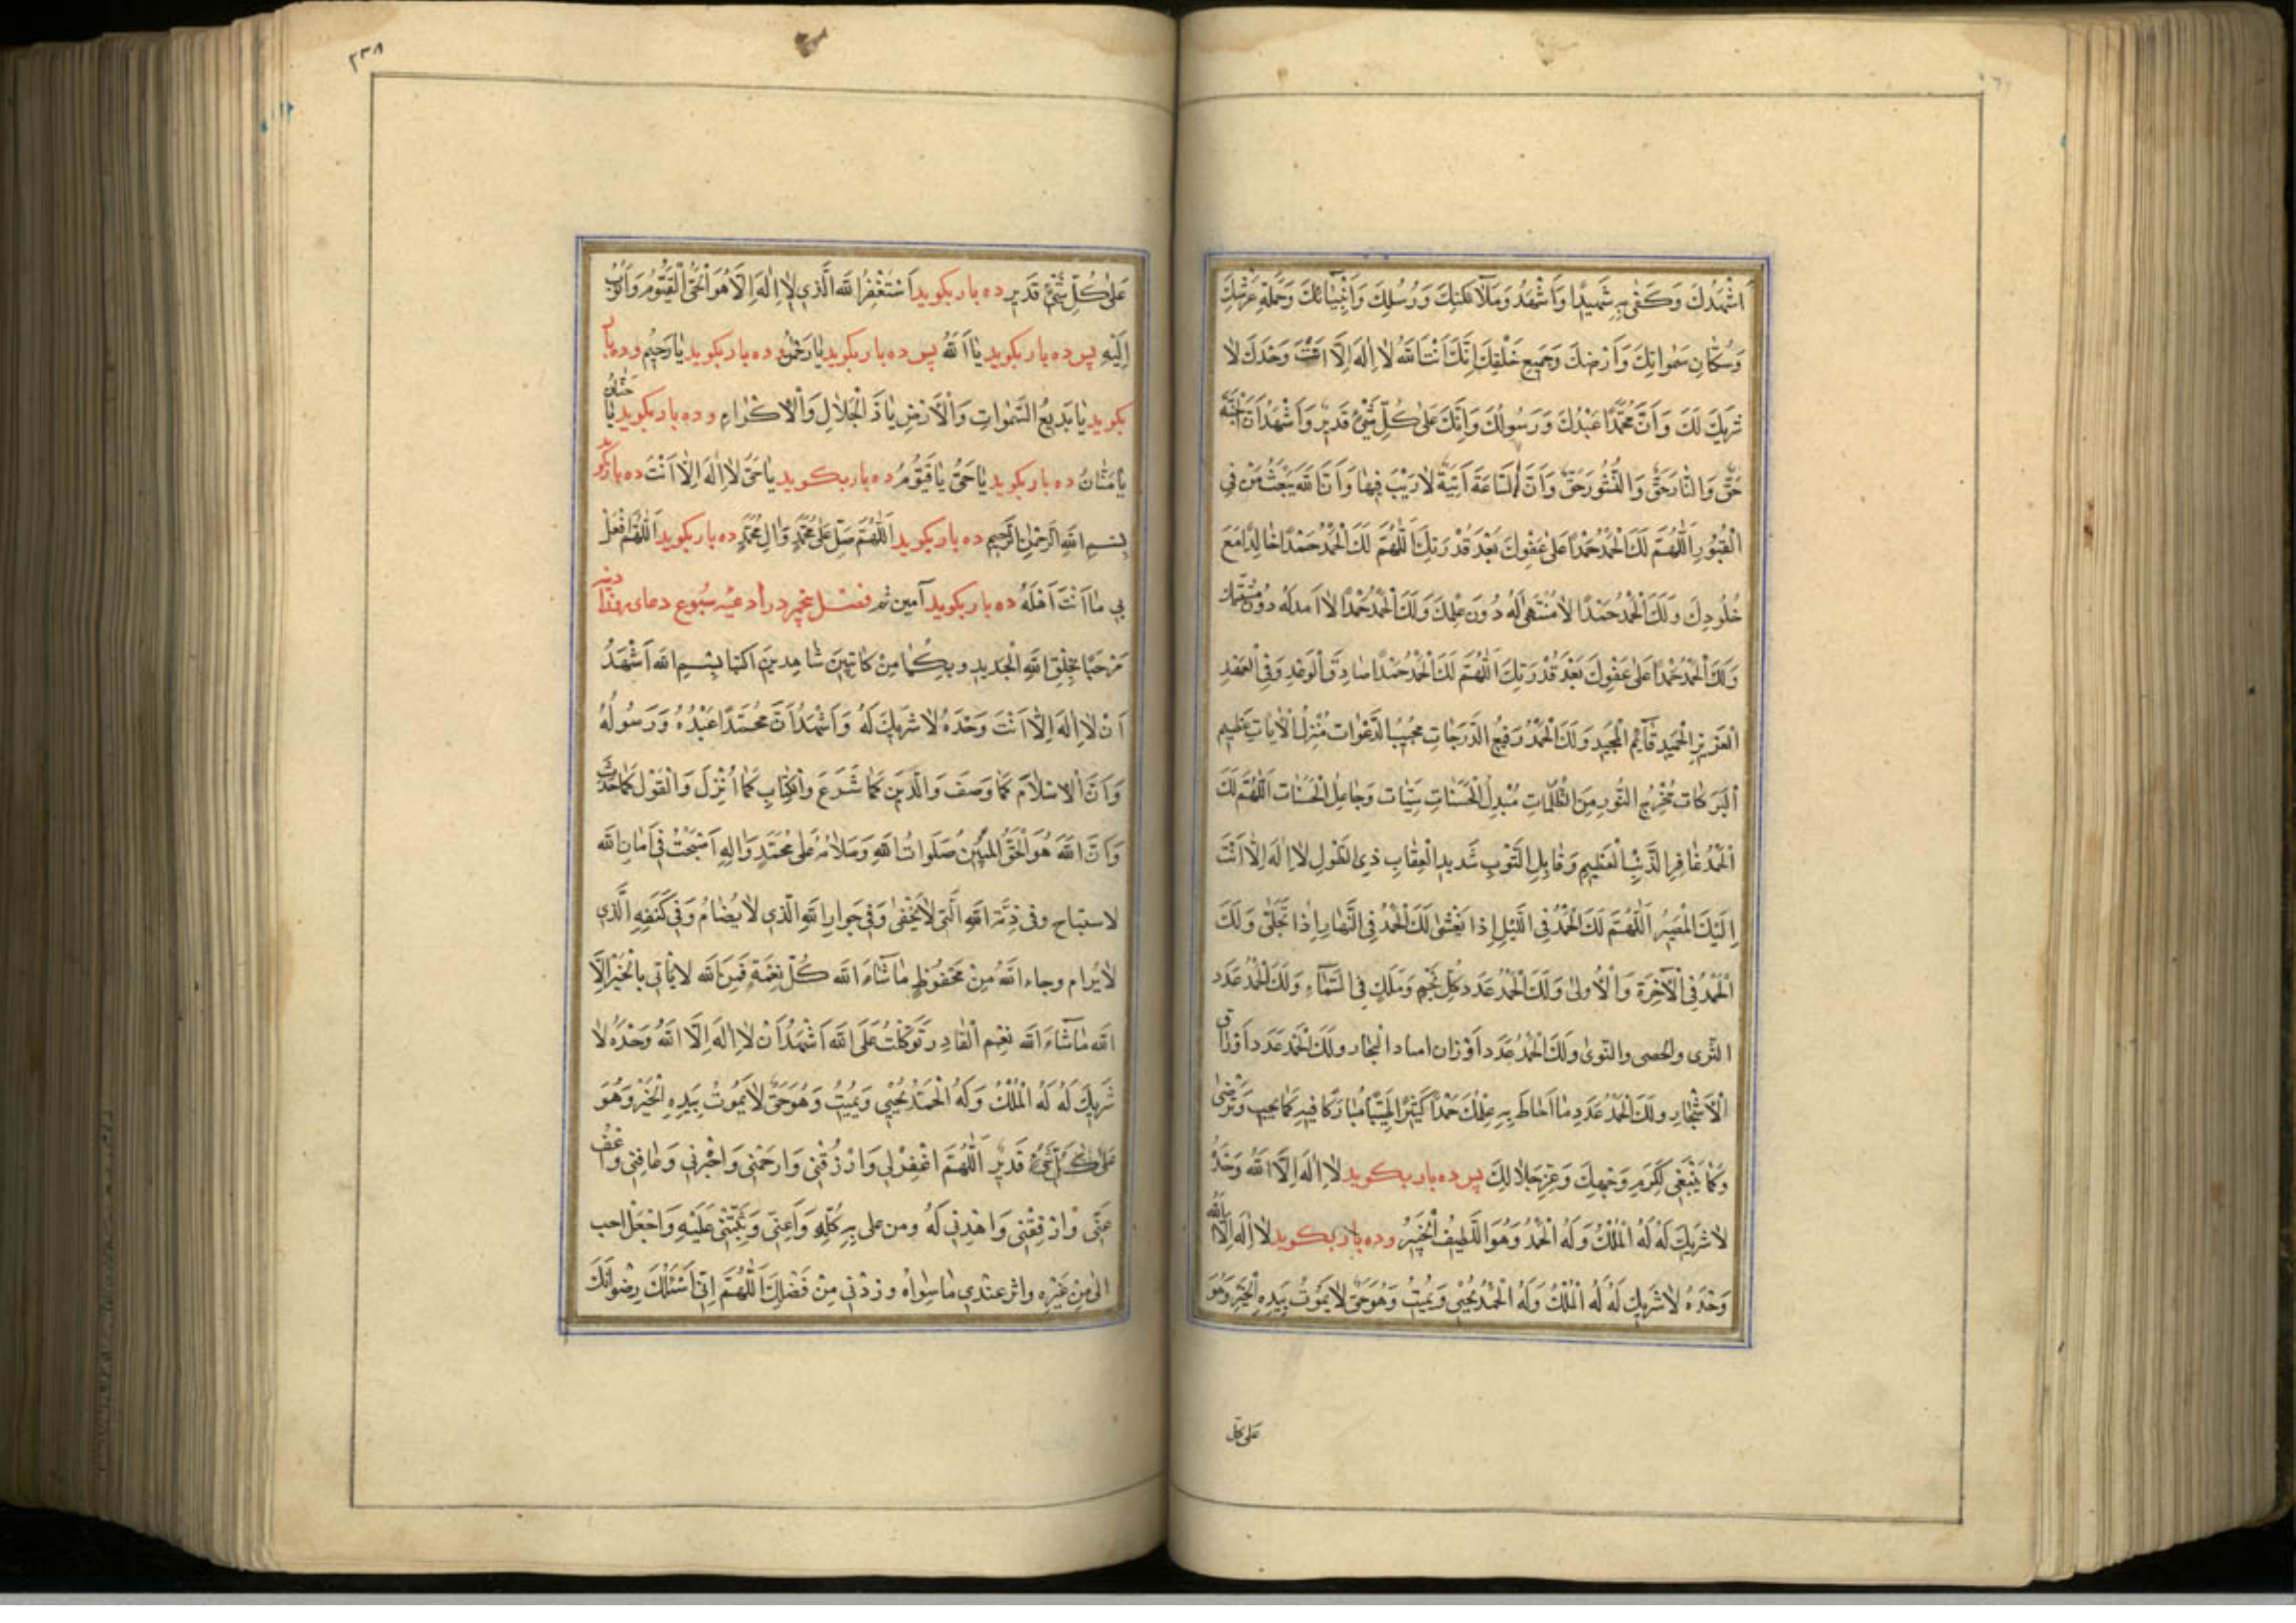 اَشْهَدُكَ وَكَفىٰ بِهِ شَهِيدًا وَاَشْهَدُ وَمَلاٰئِكَتِكَ وَرُسُلِكَ وَاَنْبِيٰائِكَ وَحَمَلَةِ عَرْشِكَ
وَسُكّٰانِ سَمٰوٰاتِكَ وَاَرْضِكَ وَجَمِيعِ خَلْقِكَ اِنَّكَ اَنْتَ اللهُ لاٰ اِلٰهَ اِلاّٰ اَنْتَ وَحْدَكَ لاٰ
شَرِيكَ لَكَ وَاَنَّ مُحَمَّدًا عَبْدُكَ وَرَسُولُكَ وَاِنَّكَ عَلىٰ كُلِّ شَيْءٍ قَدِيرٌ وَاَشْهَدُ اَنَّ الْجَنَّةَ
حَقٌّ وَالنّٰارَ حَقٌّ وَالنُّشُورَ حَقٌّ وَاَنَّ السّٰاعَةَ آتِيَةٌ لاٰ رَيْبَ فِيهٰا وَاَنَّ اللهَ يَبْعَثُ مَنْ فِي
الْقُبُورِ اَللّٰهُمَّ لَكَ الْحَمْدُ حَمْدًا عَلىٰ عَفْوِكَ بَعْدَ قُدْرَتِكَ اَللّٰهُمَّ لَكَ الْحَمْدُ حَمْدًا خٰالِدًا مَعَ
خُلُودِكَ وَلَكَ الْحَمْدُ حَمْدًا لاٰ مُنْتَهىٰ لَهُ دُونَ عِلْمِكَ وَلَكَ الْحَمْدُ حَمْدًا لاٰ اَمَدَ لَهُ دُونَ مَشِيَّتِكَ
وَلَكَ الْحَمْدُ حَمْدًا عَلىٰ عَفْوِكَ بَعْدَ قُدْرَتِكَ اَللّٰهُمَّ لَكَ الْحَمْدُ حَمْدًا صٰادِقَ الْوَعْدِ وَفِيَّ الْعَهْدِ
الْعَزِيزِ الْحَمِيدِ قٰائِمِ الْمَجِيدِ وَلَكَ الْحَمْدُ رَفِيعُ الدَّرَجٰاتِ مُجِيبُ الدَّعَوٰاتِ مُنْزِلُ الْاٰيٰاتِ عَظِيمِ
الْبَرَكٰاتِ مُخْرِجُ النُّورِ مِنَ الظُّلُمٰاتِ مُبَدِّلَ الْحَسَنٰاتِ سَيِّئٰاتِ وَجٰاعِلَ الْحَسَنٰاتِ اَللّٰهُمَّ لَكَ
الْحَمْدُ غٰافِرِ الذَّنْبِ الْعَظِيمِ وَقٰابِلِ التَّوْبِ شَدِيدِ الْعِقٰابِ ذِي الطَّوْلِ لاٰ اِلٰهَ اِلاّٰ اَنْتَ
اِلَيْكَ الْمَصِيرُ اَللّٰهُمَّ لَكَ الْحَمْدُ فِي اللَّيْلِ اِذٰا يَغْشىٰ لَكَ الْحَمْدُ فِي النَّهٰارِ اِذٰا تَجَلّىٰ وَلَكَ
الْحَمْدُ فِي الْاٰخِرَةِ وَالْاُولىٰ وَلَكَ الْحَمْدُ عَدَدَ كُلِّ نَجْمٍ وَمَلَكٍ فِي السَّمٰاءِ وَلَكَ الْحَمْدُ عَدَدَ
الثَّرى والحصى والنَّوىٰ وَلَكَ الْحَمْدُ عَدَدَ اَوْزٰان البحٰار وَلَكَ الْحَمْدُ عَدَدَ اَوْرٰاق
الْاَشْجٰارِ وَلَكَ الْحَمْدُ عَدَدَ مٰا اَحٰاطَ بِهِ عِلْمُكَ حَمْدًا كَثِيرًا طَيِّبًا مُبٰارَكًا فِيهِ كَمٰا يحب وَتَرْضىٰ
وَكَمٰا يَنْبَغِي لِكَرَمِ وَجْهِكَ وَعِزِّ جَلاٰلِكَ پس ده بار بكويد لاٰ اِلٰهَ اِلاَّ اللهُ وَحْدَهُ
لاٰ شَرِيكَ لَهُ لَهُ الْمُلْكُ وَلَهُ الْحَمْدُ وَهُوَ اللَّطِيفُ الْخَبِيرُ وده بار بكويد لاٰ اِلٰهَ اِلاَّ الله
وَحْدَهُ لاٰ شَرِيكَ لَهُ لَهُ الْمُلْكُ وَلَهُ الْحَمْدُ يُحْيِي وَيُمِيتُ وَهُوَ حَيٌّ لاٰ يَمُوتُ بِيَدِهِ الْخَيْرُ وَهُوَ
عَلىٰ كُلِّ
٢٣٨
عَلىٰ كُلِّ شَيْءٍ قَدِيرٍ ده بار بكويد اَسْتَغْفِرُ اللهَ الَّذِي لاٰ اِلٰهَ اِلاّٰ هُوَ الْحَيُّ الْقَيُّومُ وَاَتُوبُ
اِلَيْهِ پس ده بار بكويد يٰا اَللهُ پس ده بار بكويد يٰا رَحْمٰنُ ده بار بكويد يٰا رَحِيمُ وده بار
بكويد يٰا بَدِيعَ السَّمٰوٰاتِ وَالْاَرْضِ يٰا ذَا الْجَلاٰلِ وَالْاِكْرٰامِ وده بار بكويد يٰا حَنّٰانُ
يٰا مَنّٰانُ ده بار بكويد يٰا حَيُّ يٰا قَيُّومُ ده بار بكويد يٰا حَيُّ لاٰ اِلٰهَ اِلاّٰ اَنْتَ ده بار بكويد
بِسْمِ اللهِ الرَّحْمٰنِ الرَّحِيمِ ده بار بكويد اَللّٰهُمَّ صَلِّ عَلىٰ مُحَمَّدٍ وَاٰلِ مُحَمَّدٍ ده بار بكويد اَللّٰهُمَّ افْعَلْ
بِي مٰا اَنْتَ اَهْلُهُ ده بار بكويد آمين فصل پنجم در ادعيه سُبوع دعاى روز
مَرْحَبًا بِخَلْقِ اللهِ الْجَدِيدِ وبِكُمٰا مِنْ كٰاتِبَيْنِ شٰاهِدَيْنِ اكتبا بِسْمِ اللهِ اَشْهَدُ
اَنْ لاٰ اِلٰهَ اِلاّٰ اَنْتَ وَحْدَهُ لاٰ شَرِيكَ لَهُ وَاَشْهَدُ اَنَّ مُحَمَّدًا عَبْدُهُ وَرَسُولُهُ
وَاَنَّ الْاِسْلاٰمَ كَمٰا وَصَفَ وَالدِّينَ كَمٰا شَرَعَ وَالْكِتٰابِ كَمٰا اُنْزِلَ وَالْقَوْلَ كَمٰا حَدَّثَ
وَاَنَّ اللهَ هُوَ الْحَقُّ الْمُبِينُ صَلَوٰاتُ اللهِ وَسَلاٰمُهُ عَلىٰ مُحَمَّدٍ وَاٰلِهِ اَصْبَحْتُ فِي اَمٰانِ اللهِ
لا ستباح وفى ذِمَّةِ اللهِ الَّتِي لاٰ تُخْفىٰ وَفِي جِوٰارِ اللهِ الَّذِي لاٰ يُضٰامُ وَفِي كَنَفِهِ الَّذِي
لاٰ يُرام وجاء اللهُ مِنْ مَحْفُوظٍ مٰا شٰاءَ الله كُلُّ نِعْمَةٍ فَمِنَ اللهِ لاٰ يَأْتِي بِالْخَيْرِ اِلاَّ
اللهُ مٰا شٰاءَ الله نِعْمَ الْقٰادِرِ تَوَكَّلْتُ عَلَى اللهِ اَشْهَدُ اَنْ لاٰ اِلٰهَ اِلاَّ اللهُ وَحْدَهُ لاٰ
شَرِيكَ لَهُ لَهُ الْمُلْكُ وَلَهُ الْحَمْدُ يُحْيِي وَيُمِيتُ وَهُوَ حَيٌّ لاٰ يَمُوتُ بِيَدِهِ الْخَيْرُ وَهُوَ
عَلىٰ كُلِّ شَيْءٍ قَدِيرٌ اَللّٰهُمَّ اغْفِرْ لِي وَارْزُقْنِي وَارْحَمْنِي وَاجْبُرْنِي وَعٰافِنِي وَاعْفُ
عَنِّي وَارْفَعْنِي وَاهْدِنِي لَهُ ومن على بِهِ كُلِّهِ وَاَعِنِّي وَثَبِّتْنِي عَلَيْهِ وَاجْعَلْ احب
الىّ مِنْ غَيْرِهِ واثر عندي مٰا سِوٰاهُ وزِدْنِي مِنْ فَضْلِكَ اَللّٰهُمَّ اِنِّي اَسْئَلُكَ رِضْوٰانَكَ